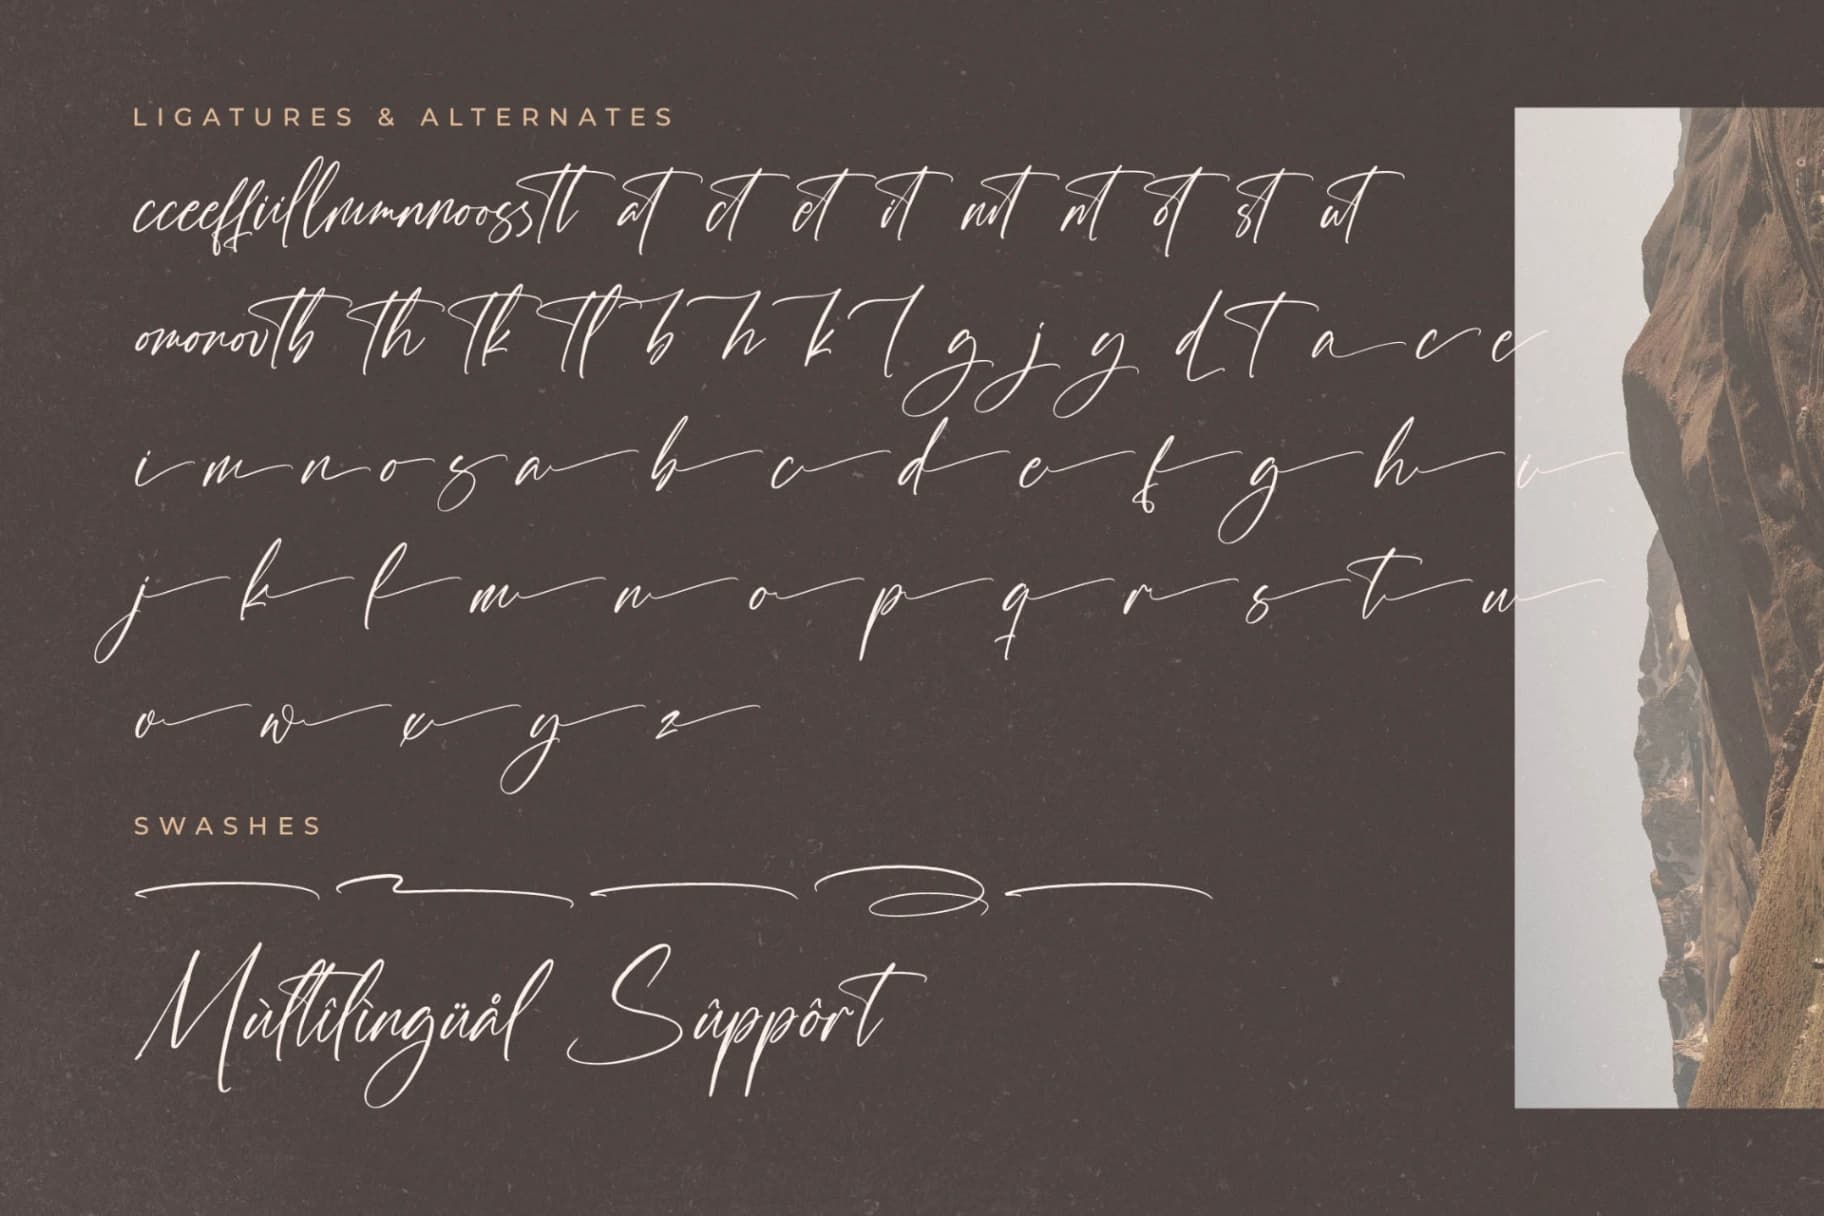 LIGATURES & ALTERNATES
cceeffiillrrumnnnoosstt at ct et it nrt nt ot st ut
omonovtb th tk tl b h k l g j y d t a c e
i m n o s a b c d e f g h v
j k l m n o p q r s t u
v w x y z
SWASHES
Mùltîlìngüål Sûppôrt